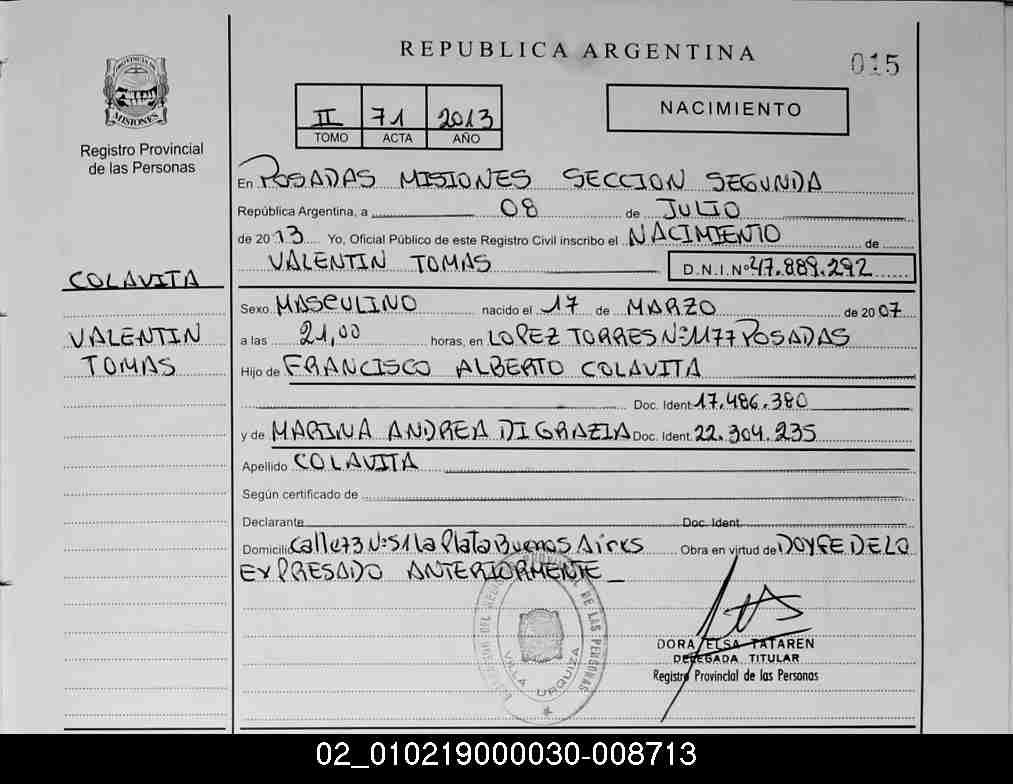 REPUBLICA ARGENTINA
015
PROVINCIA DE
MISIONES
Registro Provincial
de las Personas
II 71 2013
TOMO ACTA AÑO
NACIMIENTO
En POSADAS MISIONES SECCION SEGUNDA
República Argentina, a 08 de JULIO
de 2013 Yo, Oficial Público de este Registro Civil inscribo el NACIMIENTO de
VALENTIN TOMAS D.N.I.Nº 47.889.292
COLAVITA
VALENTIN
TOMAS
Sexo MASCULINO nacido el 17 de MARZO de 2007
a las 21,00 horas, en LOPEZ TORRES Nº1177 POSADAS
Hijo de FRANCISCO ALBERTO COLAVITA
Doc. Ident 17.486.380
y de MARINA ANDREA DI GRAZIA Doc. Ident. 22.304.235
Apellido COLAVITA
Según certificado de
Declarante Doc. Ident.
Domicilio Calle 73 Nº51 La Plata Buenos Aires Obra en virtud de DOY FE DE LO
EXPRESADO ANTERIORMENTE
DE LAS PERSONAS
VILLA URQUIZA
DORA ELSA TATAREN
DELEGADA TITULAR
Registro Provincial de las Personas
02_010219000030-008713